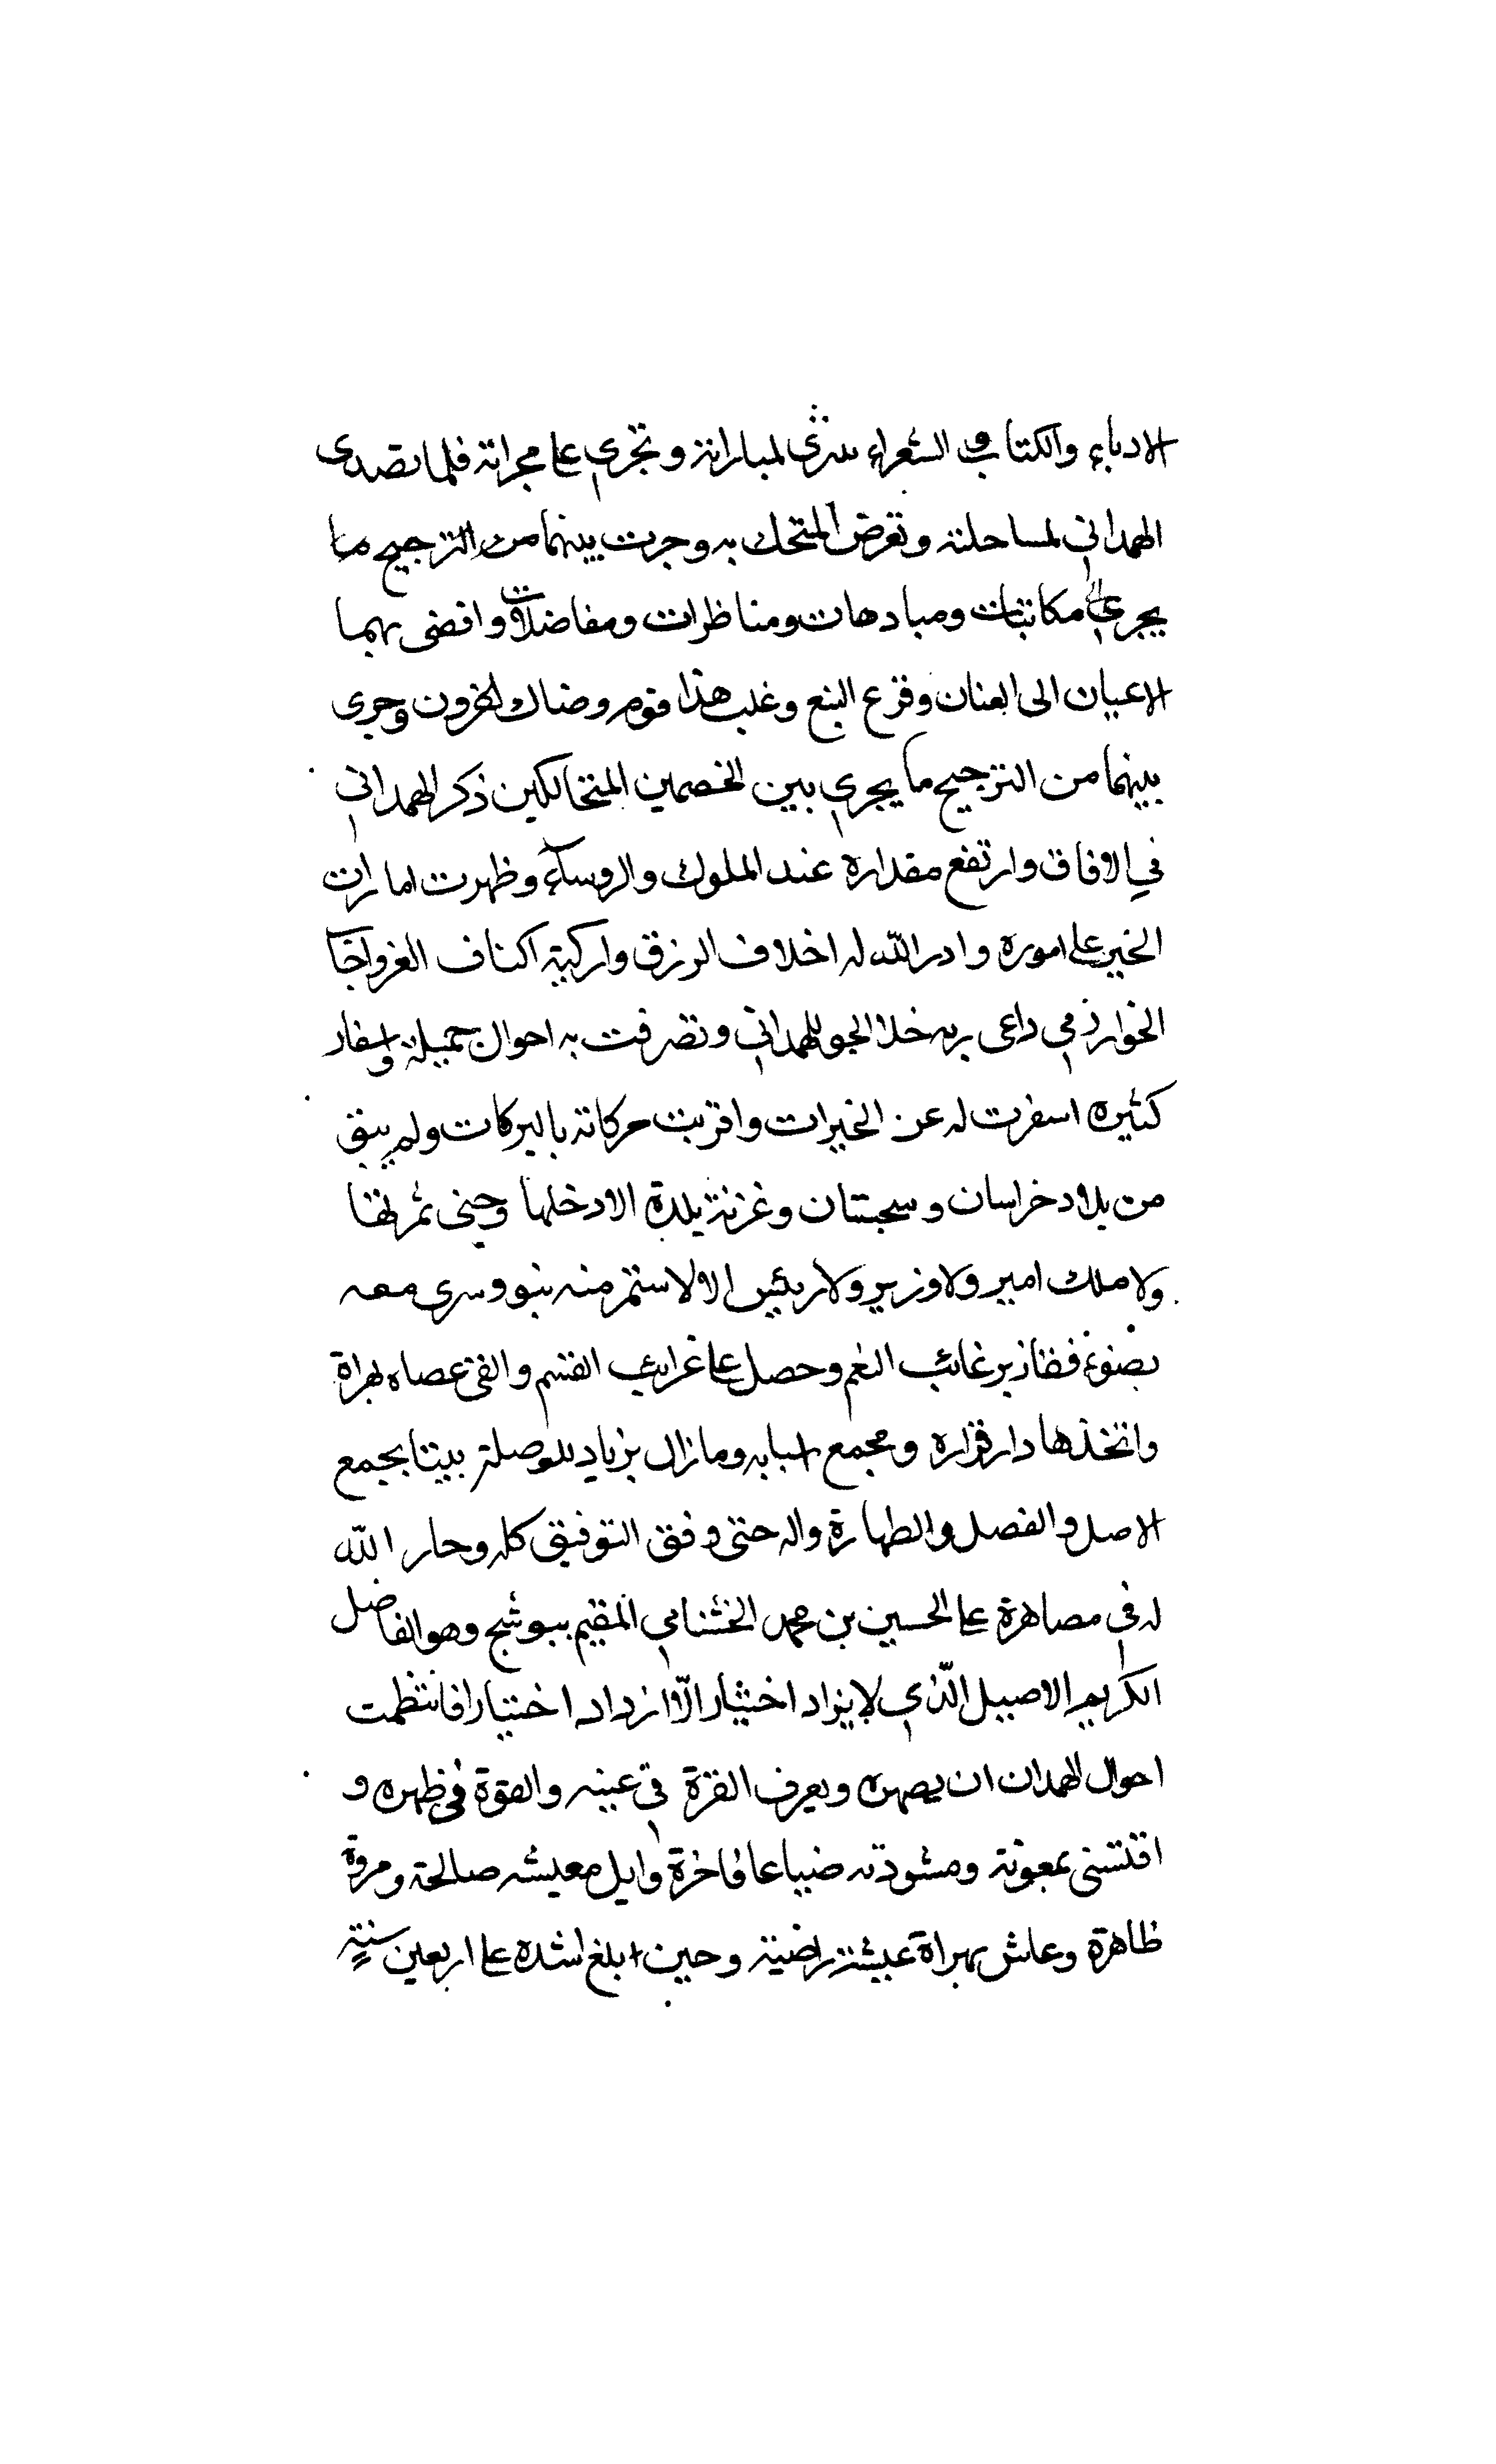 الادباء والكتاب و الشعراء ينبرى لمباراته و تجرى على مجراته فلما تصدى
الهمدانى لمساجلته وتعرض للتحكك به وجرت بينهما من الترجيح ما
يجرى مكاتبات ومبادهات ومناظرات ومفاضلات وافضى بهما
الاعيان الى العنان وقرع النبع وغلب هذا قوم وضاك اخرون وجرى
بينهما من الترجيح ما يجرى بين الخصمين المتحاكمين ذكر الهمدانى
في الافاق وارتفع مقداره عند الملوك والروساء وظهرت امارات
الخير على اموره وادر الله له اخلاف الرزق واركبته اكناف العز واجا
الخوارزمي داعى ربه خلا الجو للهمدانى وتصرفت به احوال جميلة واسفار
كثيره اسفرت له عن الخيرات واقرنت حركاته بالبركات ولم يبق
من بلاد خراسان و سجستان و غزنة بلدة الا دخلها وجنى ثمرتها
ولا ملك امير ولا وزير ولا رئيس الا لاستمر منه بنوو سرى معه
بضوئه ففاز برغائب النعم وحصل على غرائب القسم والقى عصاه بهراة
واتخذها دار قراره ومجمع اسبابه وما زال يرتاد للوصلة بيتا يجمع
الاصل والفضل والطهارة واله حتى وفق التوفيق كله وحار الله
له فى مصاهرة على الحسين بن محمد الخشنامي المقيم ببوشنج وهو الفاضل
الكريم الاصيل الذي لا يزاد اختيار الا ازداد اختيارا فانتظمت
احوال الهمدان ان يصهره ويعرف القرة في عينه والقوة في ظهره و
اقتنى بمعونته ومشورته ضياعا فاخرة وايل معيشه صالحة ومروة
ظاهرة وعاش بهراة عيشة راضية وحين بلغ اشده على اربعين سنة